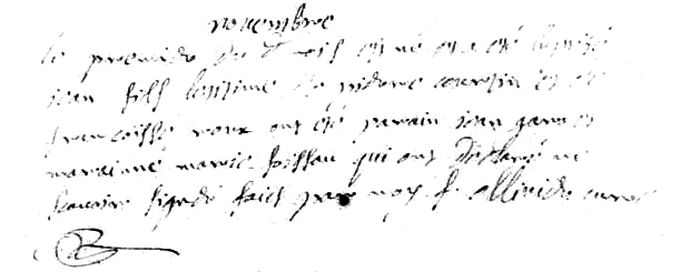 novembre
le premier du d mois est né et a été baptizé
jean fils legitime de et de
francoisse roux ont été parain jean
maraine marie qui ont declaré ne
scavoir signer faict par moy